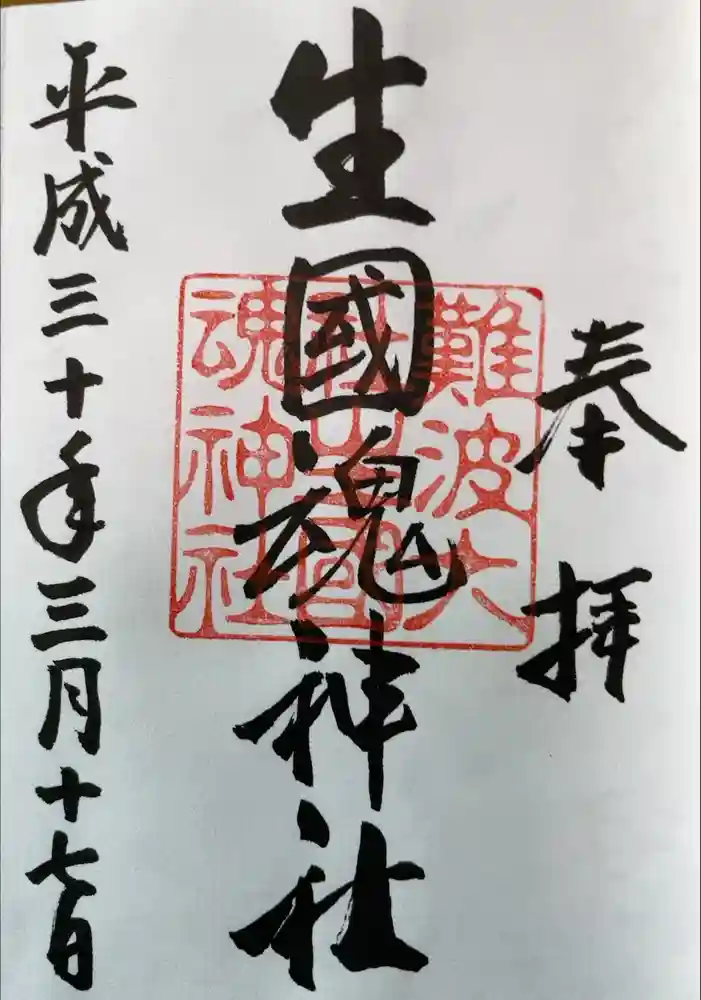 奉拝
生國魂神社
難波大
社生國
魂神社
平成三十年三月十七日